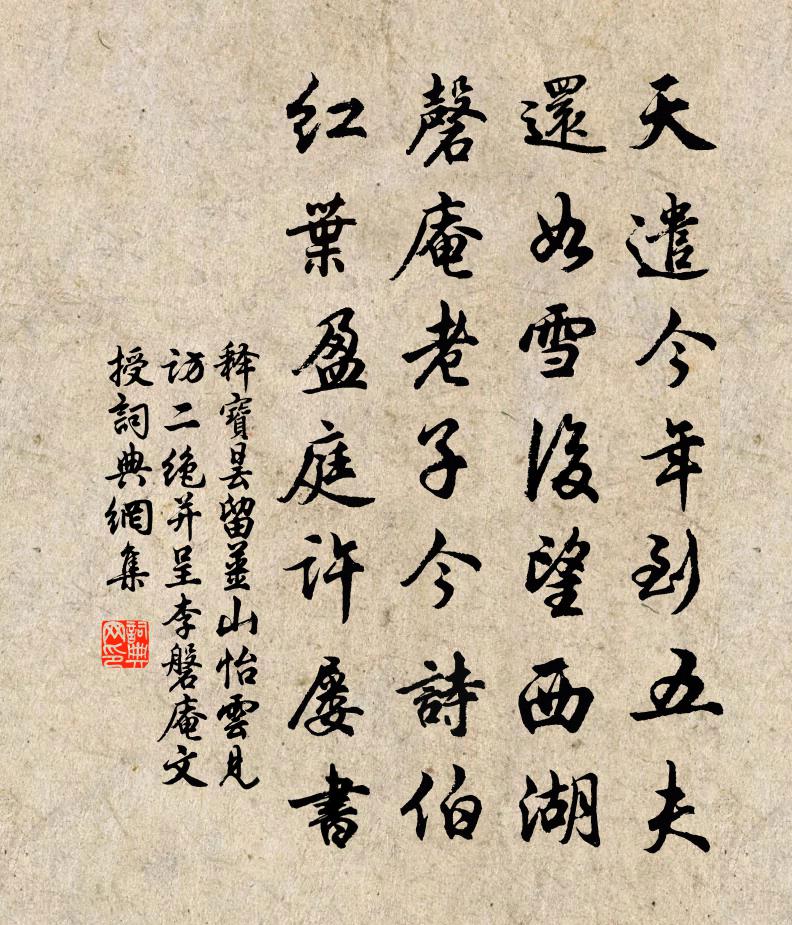 天遣今年到五夫
還如雪後望西湖
磬庵老子今詩伯
紅葉盈庭許屢書
釋寶曇留薑山怡雲見
訪二絶并呈李磐庵文
授詞典網集
詞典网印